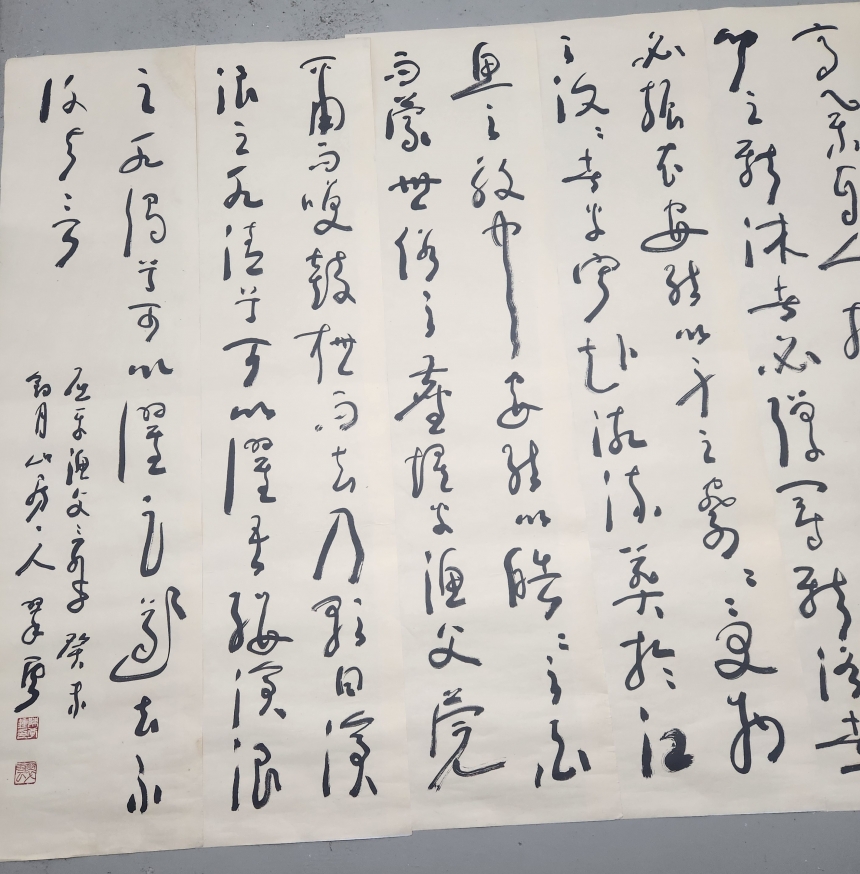 高舉自令放
聞之新沐者必彈冠新浴者
必振衣安能以身之察々受物
之汶々者乎寧赴湘流葬於江
魚之腹中安能以皓々之白
而蒙世俗之塵埃乎漁父莞
爾而笑鼓枻而去乃歌曰滄
浪之水清兮可以濯吾纓滄浪
之水濁兮可以濯足遂去不
復與之言
屈平漁父之辭 癸未
釣月山房主人